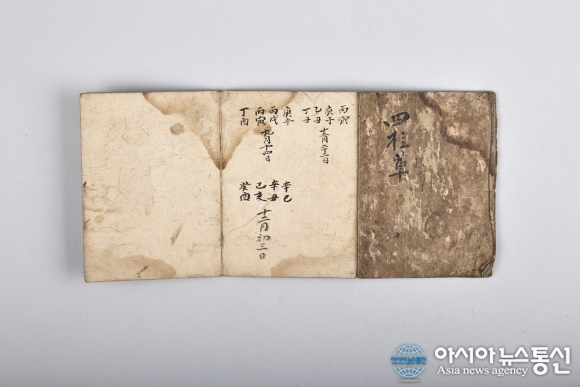 四柱草
丙寅
庚子
十一月二十三日
乙丑
丁丑
庚午
丙戌
九月十四日
丙寅
丁酉
辛巳
辛丑
十二月初三日
己亥
癸酉
아시아뉴스통신
Asia news agency